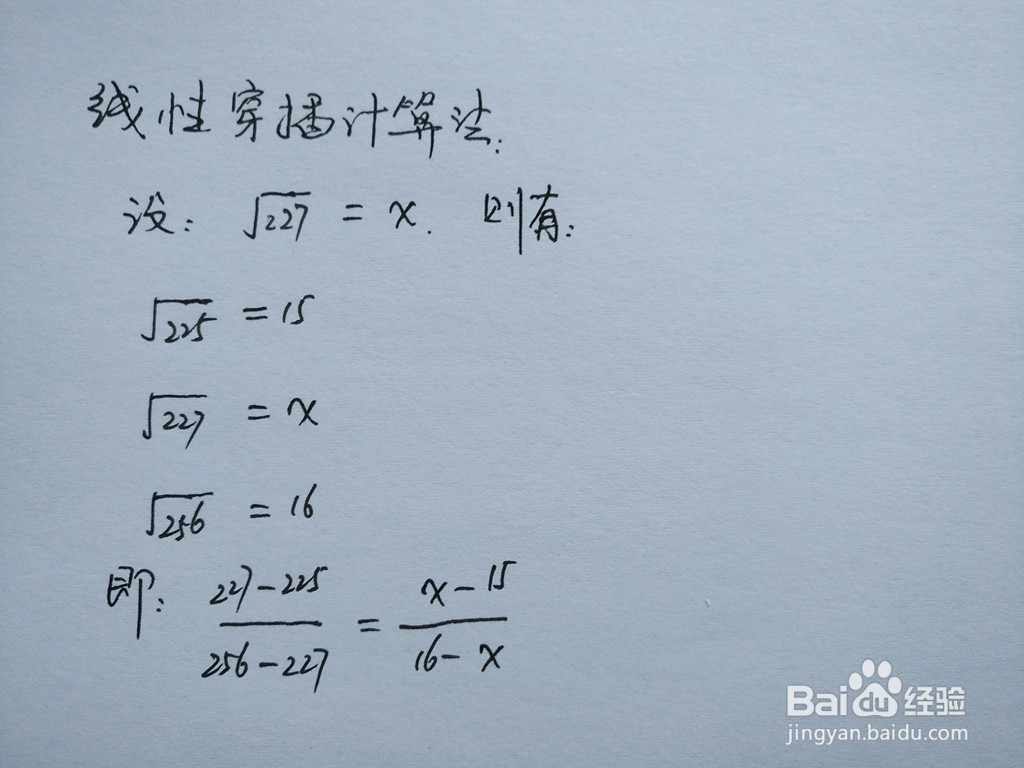 线性穿插计算法:
设: √227 = x. 则有:
√225 = 15
√227 = x
√256 = 16
即: (227-225)/(256-227) = (x-15)/(16-x)
Baidu经验
jingyan.baidu.com